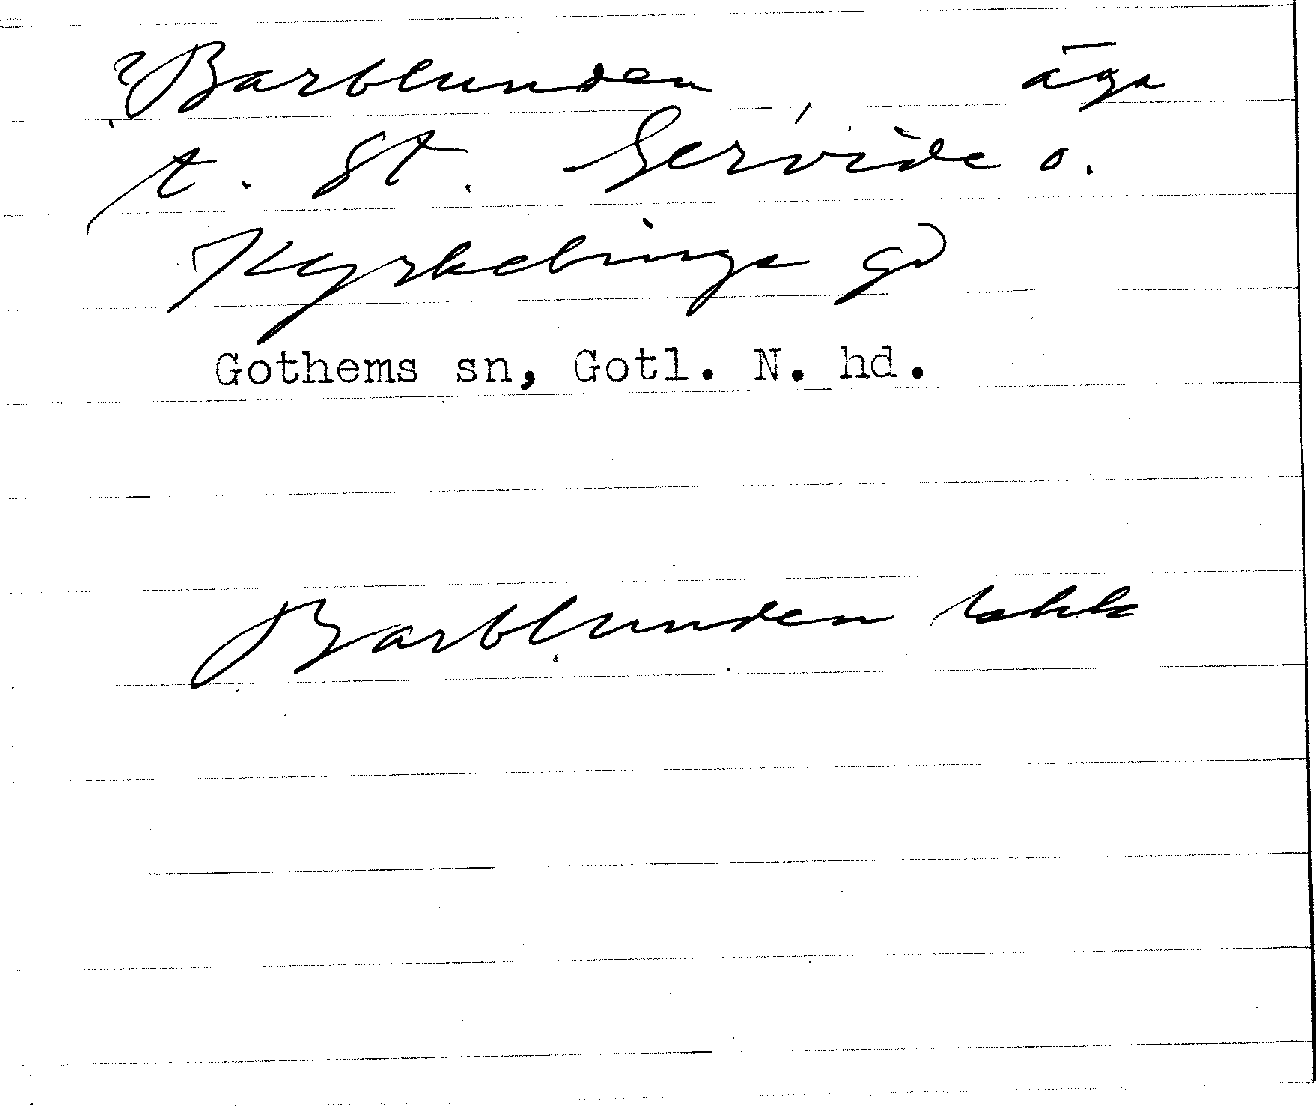 ?Barblunden, äga
t. St. Servide o.
Kyrkebinge gd
Gothems sn, Gotl. N. hd.
Barblunden